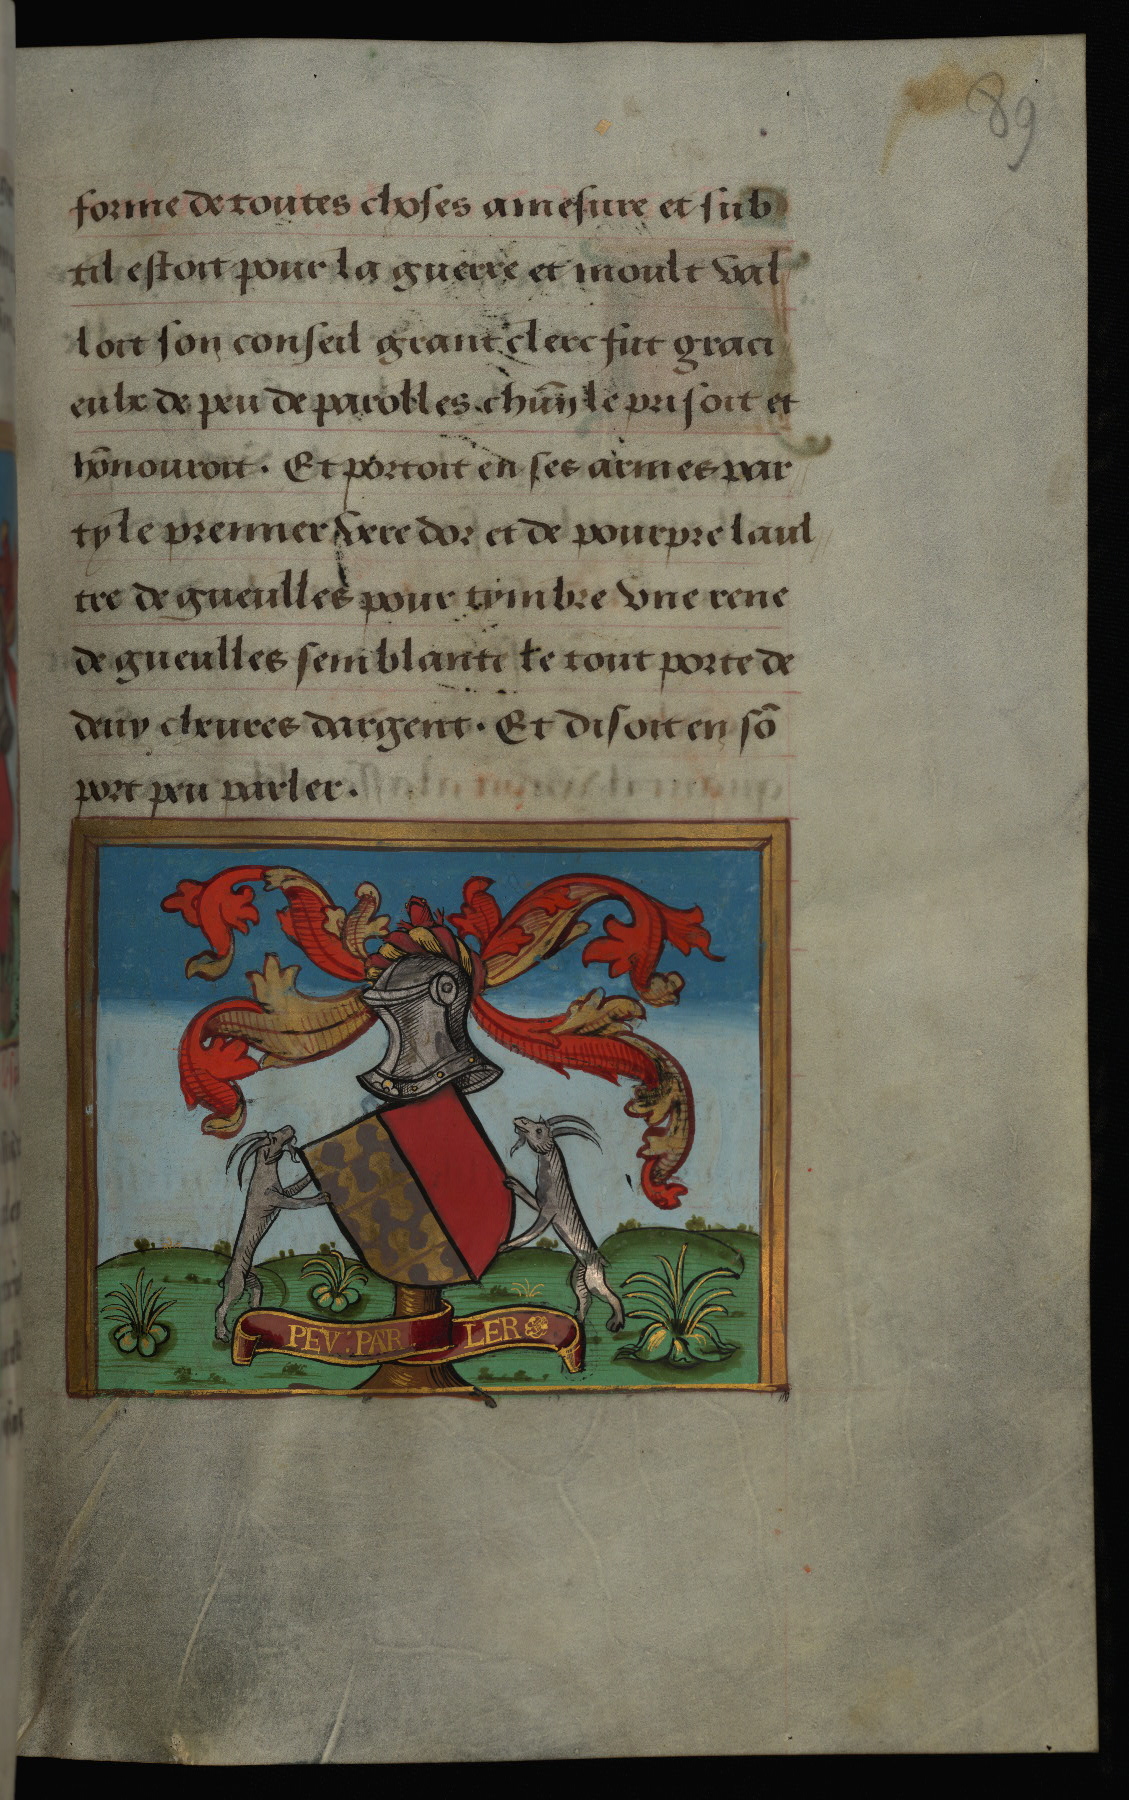 89
forme de toutes choses a mesure et sub
til estoit pour la guerre et moult val
loit son conseil grant clerc fut graci
eulx de peu de parolles chūn le prisoit et
hōnouroit. Et portoit en ses armes par
ty le premier vere dor et de pourpre laul
tre de gueulles pour tymbre vne rene
de gueulles semblante le tout porte de
deux chevres dargent. Et disoit en sō
port peu parler.
PEV : PAR LER